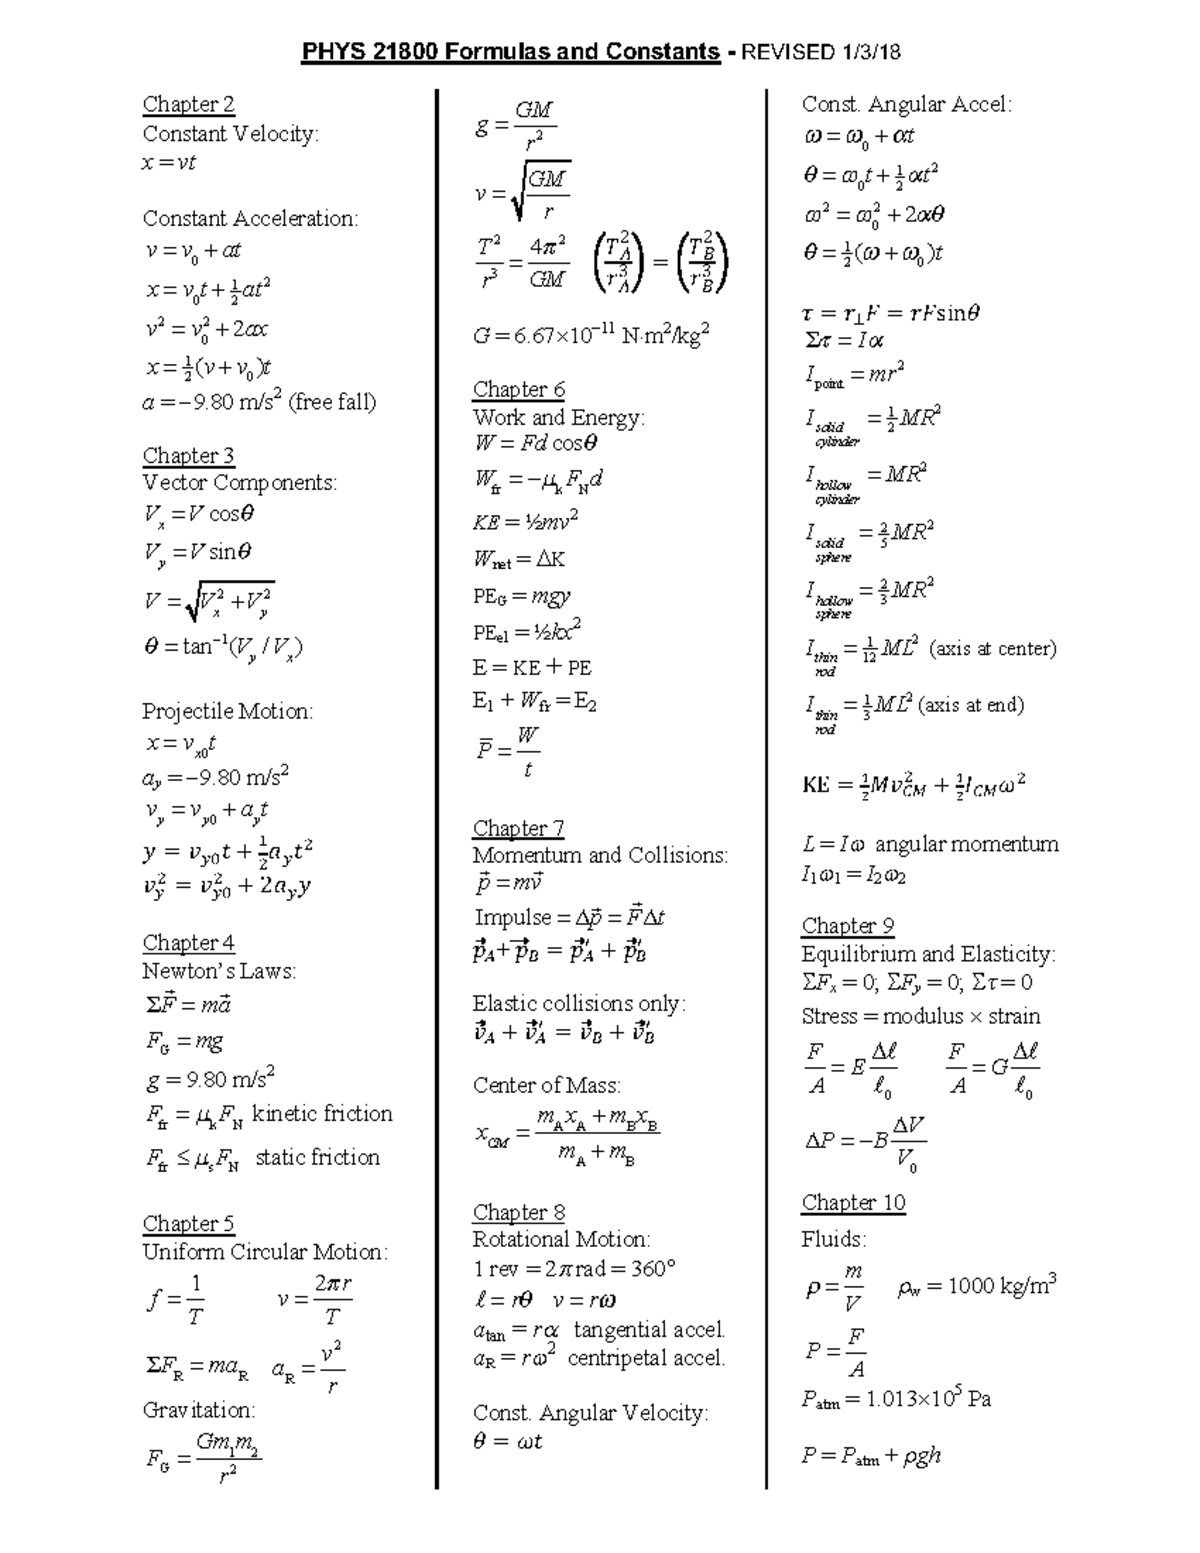 PHYS 21800 Formulas and Constants - REVISED 1/3/18
Chapter 2
Constant Velocity:
x = vt
Constant Acceleration:
v = v₀ + at
x = v₀t + ½at²
v² = v₀² + 2ax
x = ½(v + v₀)t
a = −9.80 m/s² (free fall)
Chapter 3
Vector Components:
Vₓ = V cosθ
V_y = V sinθ
V = √(Vₓ² + V_y²)
θ = tan⁻¹(V_y / Vₓ)
Projectile Motion:
x = v_x0 t
a_y = −9.80 m/s²
v_y = v_y0 + a_y t
y = v_y0 t + ½a_y t²
v_y² = v_y0² + 2a_y y
Chapter 4
Newton's Laws:
ΣF⃗ = ma⃗
F_G = mg
g = 9.80 m/s²
F_fr = μ_k F_N kinetic friction
F_fr ≤ μ_s F_N static friction
Chapter 5
Uniform Circular Motion:
f = 1/T v = 2πr/T
ΣF_R = ma_R a_R = v²/r
Gravitation:
F_G = Gm₁m₂/r²
g = GM/r²
v = √(GM/r)
T²/r³ = 4π²/GM (T_A²/r_A³) = (T_B²/r_B³)
G = 6.67×10⁻¹¹ N·m²/kg²
Chapter 6
Work and Energy:
W = Fd cosθ
W_fr = −μ_k F_N d
KE = ½mv²
W_net = ΔK
PE_G = mgy
PE_el = ½kx²
E = KE + PE
E₁ + W_fr = E₂
P̅ = W/t
Chapter 7
Momentum and Collisions:
p⃗ = mv⃗
Impulse = Δp⃗ = F⃗Δt
p⃗_A + p⃗_B = p⃗′_A + p⃗′_B
Elastic collisions only:
v⃗_A + v⃗′_A = v⃗_B + v⃗′_B
Center of Mass:
x_CM = (m_A x_A + m_B x_B)/(m_A + m_B)
Chapter 8
Rotational Motion:
1 rev = 2π rad = 360°
ℓ = rθ v = rω
a_tan = rα tangential accel.
a_R = rω² centripetal accel.
Const. Angular Velocity:
θ = ωt
Const. Angular Accel:
ω = ω₀ + αt
θ = ω₀t + ½αt²
ω² = ω₀² + 2αθ
θ = ½(ω + ω₀)t
τ = r⊥F = rFsinθ
Στ = Iα
I_point = mr²
I_solid cylinder = ½MR²
I_hollow cylinder = MR²
I_solid sphere = ⅖MR²
I_hollow sphere = ⅔MR²
I_thin rod = 1/12 ML² (axis at center)
I_thin rod = ⅓ML² (axis at end)
KE = ½Mv²_CM + ½I_CM ω²
L = Iω angular momentum
I₁ω₁ = I₂ω₂
Chapter 9
Equilibrium and Elasticity:
ΣFₓ = 0; ΣF_y = 0; Στ = 0
Stress = modulus × strain
F/A = E Δℓ/ℓ₀ F/A = G Δℓ/ℓ₀
ΔP = −B ΔV/V₀
Chapter 10
Fluids:
ρ = m/V ρ_w = 1000 kg/m³
P = F/A
P_atm = 1.013×10⁵ Pa
P = P_atm + ρgh